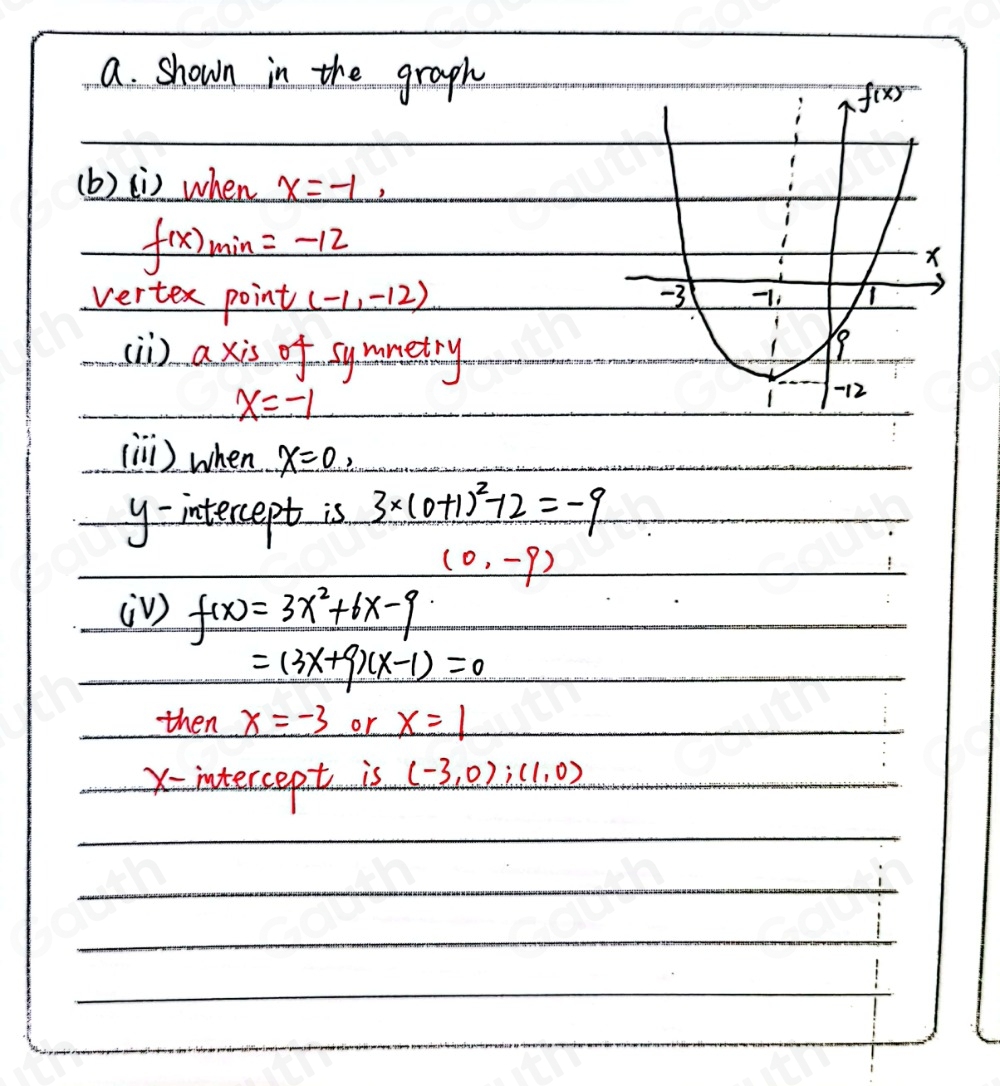 a. Shown in the graph
f(x)
(b) (i) when x=-1,
f(x)min = -12
x
vertex point (-1,-12)
-3 -1 1
(ii) axis of symmetry
9
x=-1
-12
(iii) when x=0,
y-intercept is 3×(0+1)²-12=-9
(0,-9)
(iv) f(x)=3x²+6x-9
=(3x+9)(x-1)=0
then x=-3 or x=1
x-intercept is (-3,0);(1,0)
Gauth